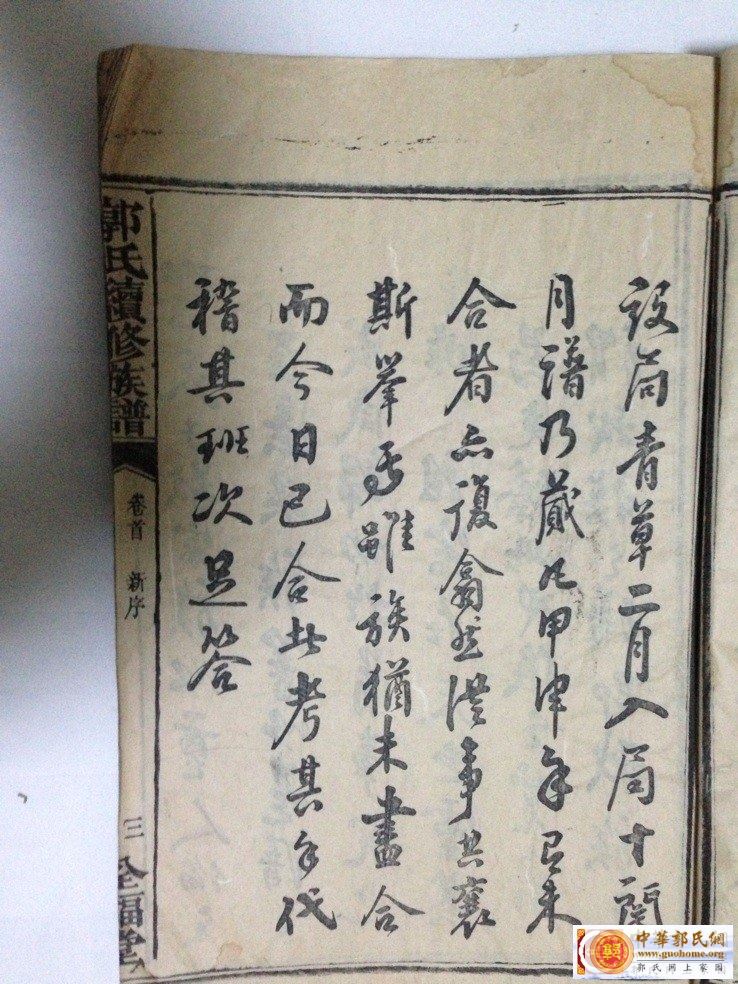 設局青草二月入局十閱
月譜乃蕆凡甲申年已未
合者亦復翕然從事共襄
斯舉焉雖族猶未盡合
而今日已合者考其年代
稽其班次足答
郭氏續修族譜
卷首 新序
三
全福堂
中華郭氏網
www.guohome.org
郭氏網上家園